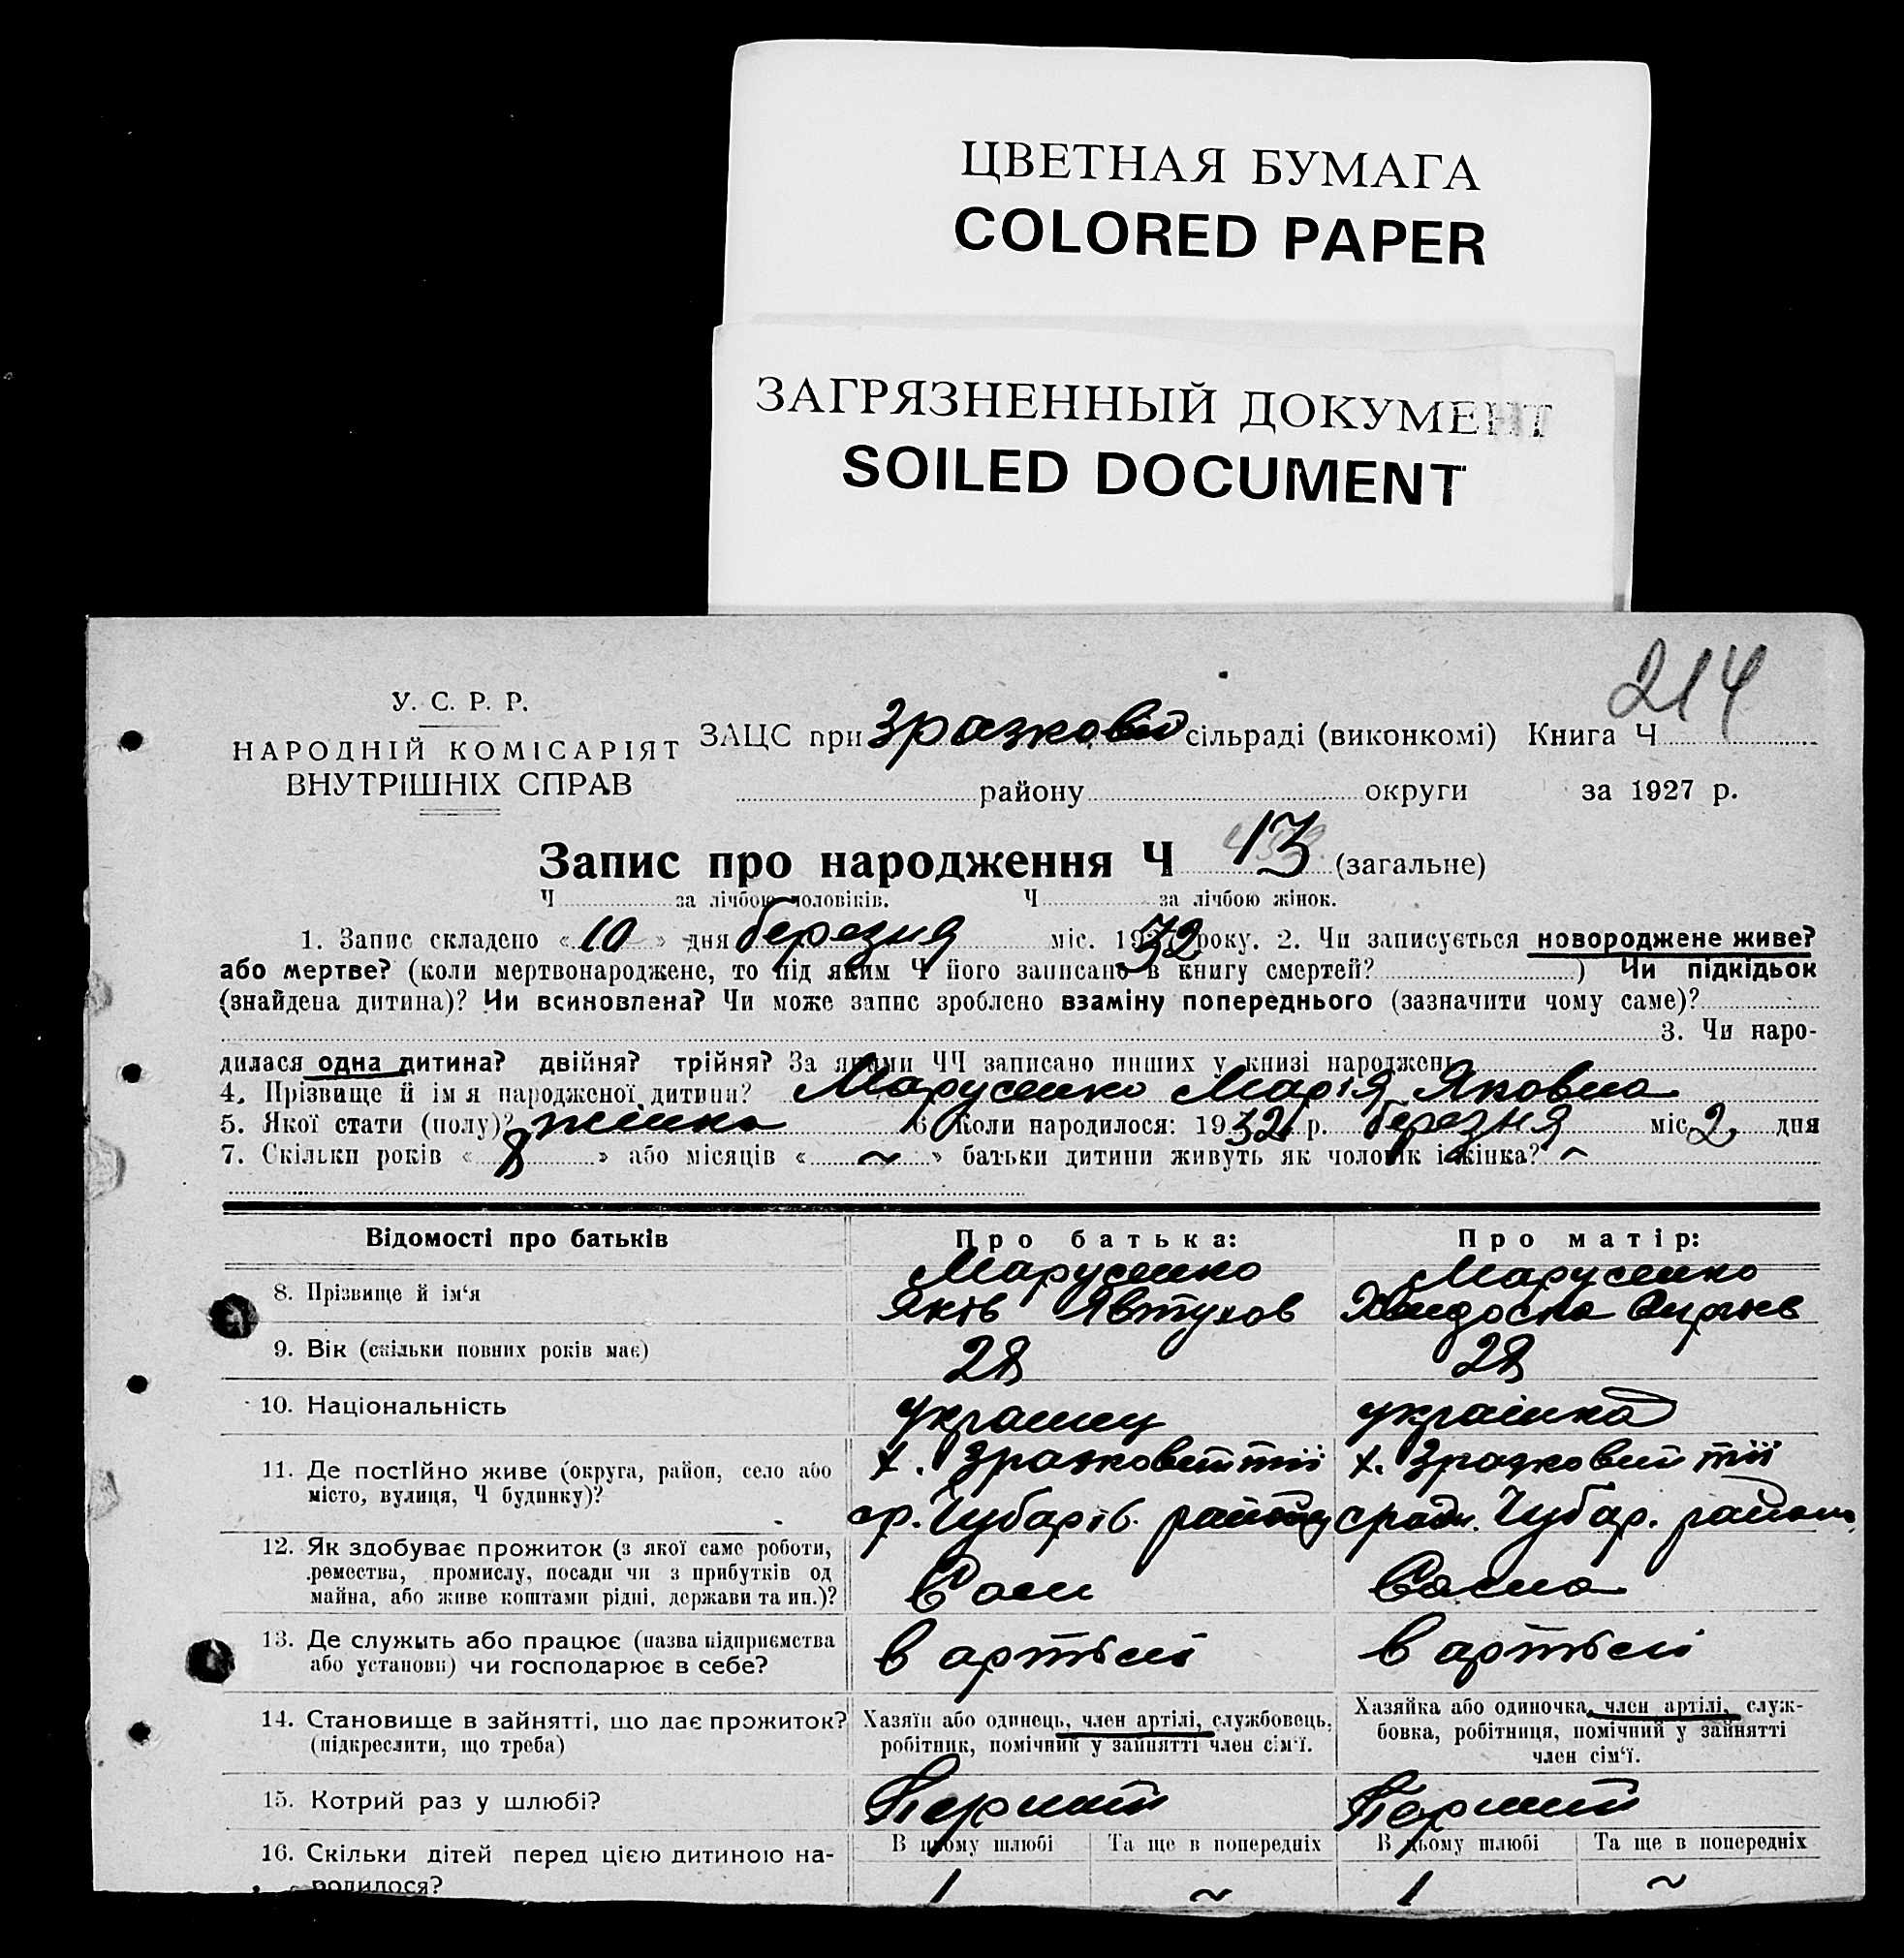 ЦВЕТНАЯ БУМАГА
COLORED PAPER
ЗАГРЯЗНЕННЫЙ ДОКУМЕНТ
SOILED DOCUMENT
214
У. С. Р. Р.
НАРОДНІЙ КОМІСАРІЯТ
ВНУТРІШНІХ СПРАВ
ЗАЦС при Зразковій сільраді (виконкомі) Книга Ч
району округи за 1927 р.
Запис про народження Ч 13 (загальне)
Ч за лічбою чоловіків. Ч за лічбою жінок.
1. Запис складено « 10 » дня березня міс. 1932 року. 2. Чи записується новороджене живе?
або мертве? (коли мертвонароджене, то під яким Ч його записано в книгу смертей? ) Чи підкідьок
(знайдена дитина)? Чи всиновлена? Чи може запис зроблено взаміну попереднього (зазначити чому саме)?
3. Чи наро-
дилася одна дитина? двійня? трійня? За якими ЧЧ записано инших у книзі народжень
4. Прізвище й ім я народженої дитини? Марусенко Марія Яковна
5. Якої стати (полу)? жінка 6. Коли народилося: 1932 р. березня міс. 2 дня
7. Скільки років « 8 » або місяців « ~ » батьки дитини живуть як чоловік і жінка? ~
Відомості про батьків Про батька: Про матір:
8. Прізвище й ім‘я Марусенко Яків Явтухов Марусенко
9. Вік (скільки повних років має) 28 28
10. Національність украинец українка
11. Де постійно живе (округа, район, село або
місто, вулиця, Ч будинку)?
х. Зразковий тії х. Зразковий тії
ср. Чубарів. району сради. Чубар. району
12. Як здобуває прожиток (з якої саме роботи,
ремества, промислу, посади чи з прибутків од
майна, або живе коштами рідні, держави та ин.)?
Сам Сама
13. Де служить або працює (назва підприємства
або установи) чи господарює в себе?
в артілі в артілі
14. Становище в зайнятті, що дає прожиток?
(підкреслити, що треба)
Хазяїн або одинець, член артілі, службовець,
робітник, помічний у зайнятті член сім‘ї.
Хазяйка або одиночка, член артілі, служ-
бовка, робітниця, помічний у зайнятті
член сім‘ї.
15. Котрий раз у шлюбі? Перший Перший
16. Скільки дітей перед цією дитиною на-
родилося?
В цьому шлюбі Та ще в попередніх В цьому шлюбі Та ще в попередніх
1 ~ 1 ~